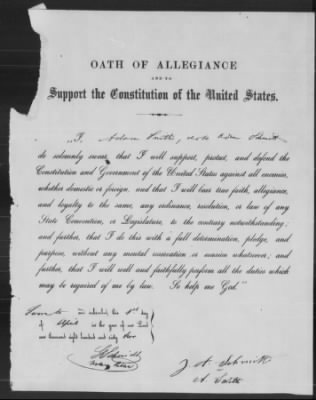 OATH OF ALLEGIANCE
AND TO
Support the Constitution of the United States.
"I, Adam Smith,
do solemnly swear, that I will support, protect, and defend the
Constitution and Government of the United States against all enemies,
whether domestic or foreign, and that I will bear true faith, allegiance,
and loyalty to the same, any ordinance, resolution, or law of any
State Convention, or Legislature, to the contrary notwithstanding;
and further, that I do this with a full determination, pledge, and
purpose, without any mental reservation or evasion whatsoever; and
further, that I will well and faithfully perform all the duties which
may be required of me by law. So help me God."
and subscribed, this day
of April in the year of our Lord
one thousand eight hundred and sixty
Schmidt